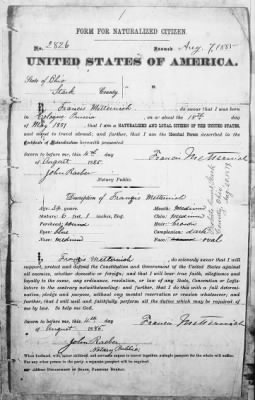 FORM FOR NATURALIZED CITIZEN.
No. 2826 Issued Aug. 7, 1885
UNITED STATES OF AMERICA.
State of Ohio
Stark County
I, Francis Metternich, do swear that I was born
in Cologne, Prussia, on or about the 18th day
of May 1851; that I am a NATURALIZED AND LOYAL CITIZEN OF THE UNITED STATES,
and about to travel abroad; and further, that I am the Identical Person described in the
Certificate of Naturalization herewith presented.
Sworn to before me, this 4th day
of August 1885
Francis Metternich
John Raeber
Notary Public.
Description of Francis Metternich
Age: 34 years
Mouth: medium
Stature: 5 feet, 1 inches, Eng.
Chin: medium
Forehead: round
Hair: brown
Eyes: blue
Complexion: dark
Nose: medium
Face: oval
I, Francis Metternich, do solemnly swear that I will
support, protect and defend the Constitution and Government of the United States against
all enemies, whether domestic or foreign; and that I will bear true faith, allegiance and
loyalty to the same, any ordinance, resolution or law of any State, Convention or Legislature
to the contrary notwithstanding; and further, that I do this with a full determination,
pledge and purpose, without any mental reservation or evasion whatsoever; and
further, that I will well and faithfully perform all the duties which may be required of
me by law. So help me God.
Sworn to before me, this 4th day
of August 1885
Francis Metternich
John Raeber
Notary Public